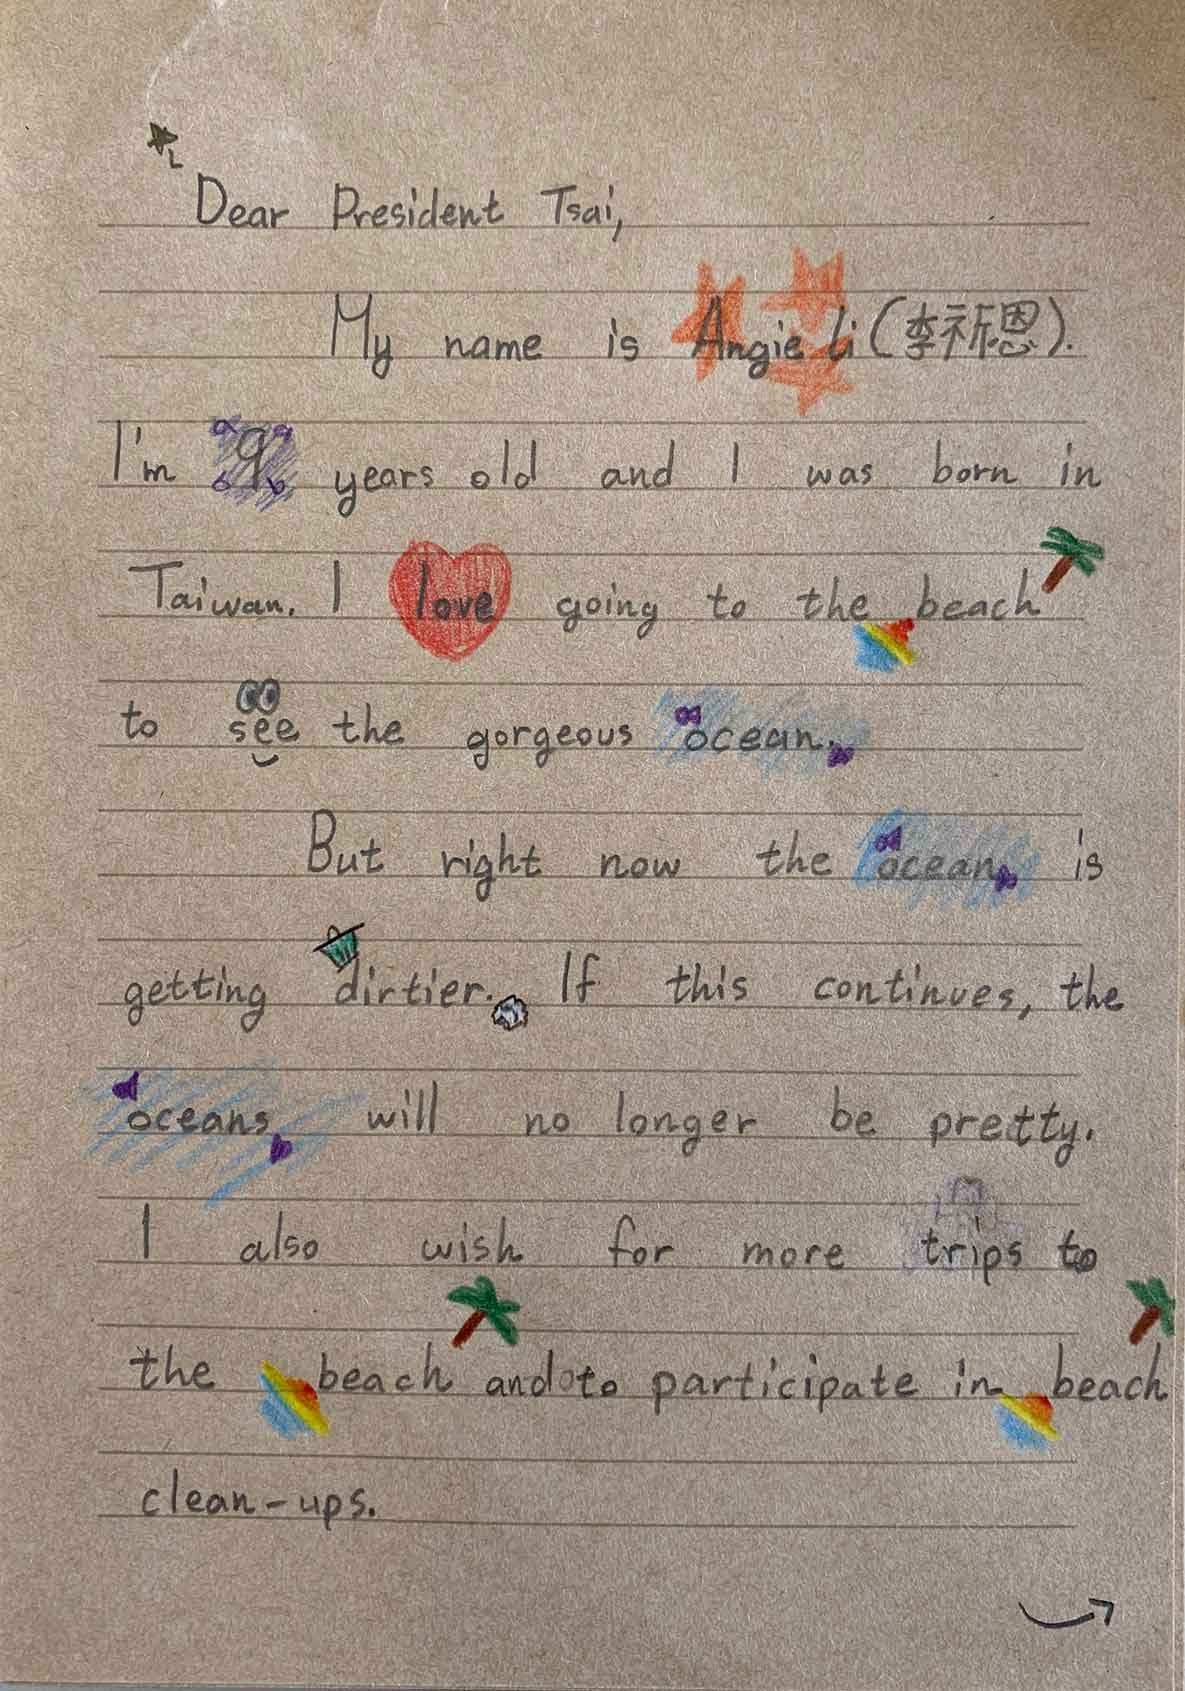 Dear President Tsai,
My name is Angie Li (李祈恩).
I'm 9 years old and I was born in
Taiwan. I love going to the beach
to see the gorgeous ocean.
But right now the ocean is
getting dirtier. If this continues, the
oceans will no longer be pretty.
I also wish for more trips to
the beach and to participate in beach
clean-ups.